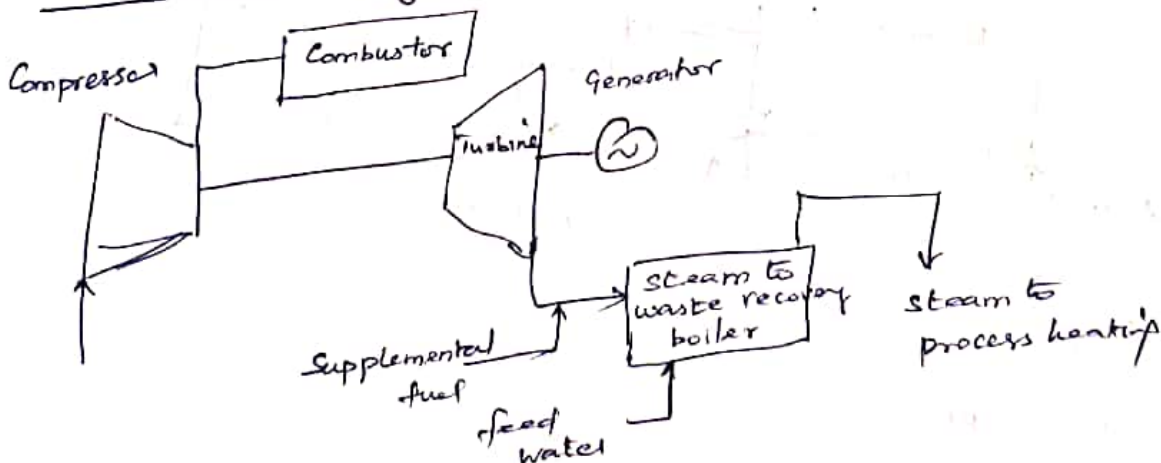 Combustor
Compressor
Generator
Turbine
steam to
waste recovery
boiler
steam to
process heating
Supplemental
fuel
feed
water